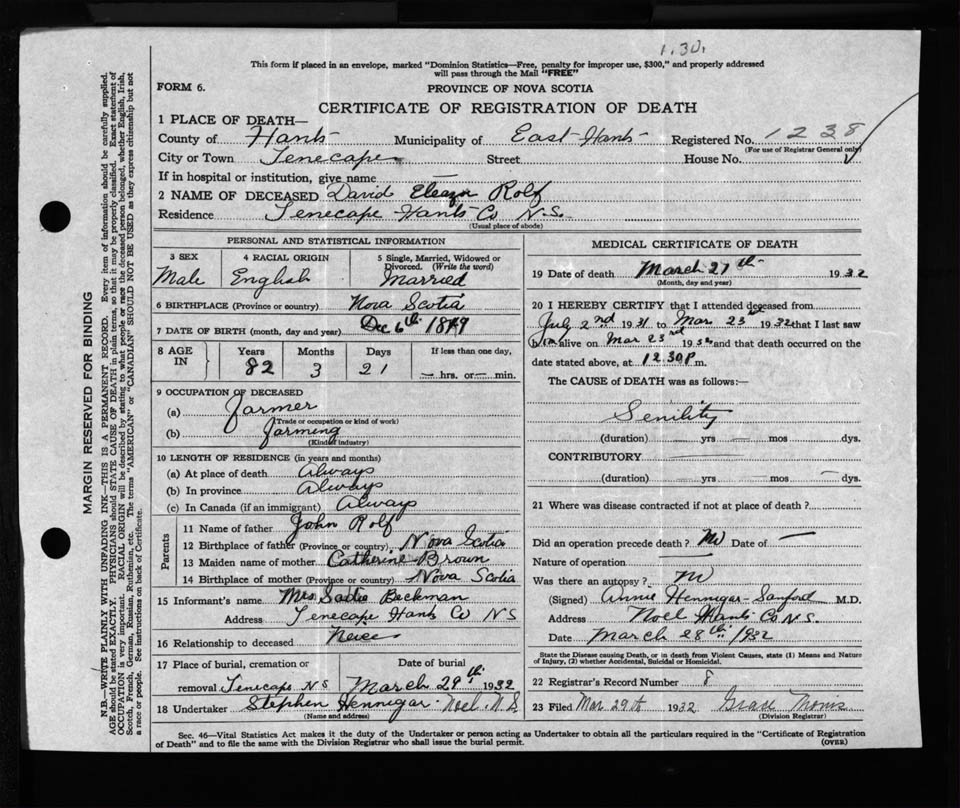 1.30.
This form if placed in an envelope, marked "Dominion Statistics—Free, penalty for improper use, $300," and properly addressed
will pass through the Mail "FREE"
FORM 6.
PROVINCE OF NOVA SCOTIA
CERTIFICATE OF REGISTRATION OF DEATH
1 PLACE OF DEATH—
County of Hants Municipality of East Hants Registered No. 1238
(For use of Registrar General only)
City or Town Tenecape Street House No.
If in hospital or institution, give name —
2 NAME OF DECEASED David Eleazer Rolf
Residence Tenecape Hants Co N.S.
(Usual place of abode)
PERSONAL AND STATISTICAL INFORMATION
3 SEX 4 RACIAL ORIGIN 5 Single, Married, Widowed or
Divorced. (Write the word)
Male English Married
6 BIRTHPLACE (Province or country) Nova Scotia
7 DATE OF BIRTH (month, day and year) Dec 6th 1849
8 AGE IN Years Months Days If less than one day,
82 3 21 — hrs. or — min.
9 OCCUPATION OF DECEASED
(a) Farmer
(Trade or occupation or kind of work)
(b) Farming
(Kind of industry)
10 LENGTH OF RESIDENCE (in years and months)
(a) At place of death Always
(b) In province Always
(c) In Canada (if an immigrant) Always
Parents
11 Name of father John Rolf
12 Birthplace of father (Province or country) Nova Scotia
13 Maiden name of mother Catherine Brown
14 Birthplace of mother (Province or country) Nova Scotia
15 Informant's name Mrs Sadie Beckman
Address Tenecape Hants Co NS
16 Relationship to deceased Neice
17 Place of burial, cremation or Date of burial
removal Tenecape N S March 29th 1932
18 Undertaker Stephen Hennigar Noel N.S
(Name and address)
MEDICAL CERTIFICATE OF DEATH
19 Date of death March 27th 1932
(Month, day and year)
20 I HEREBY CERTIFY that I attended deceased from
July 2nd 1931 to Mar 23rd 1932 that I last saw
him alive on Mar 23rd 1932 and that death occurred on the
date stated above, at 12.30 P m.
The CAUSE of DEATH was as follows:—
Senility
(duration) — yrs — mos — dys.
CONTRIBUTORY —
(duration) yrs mos — dys.
21 Where was disease contracted if not at place of death? —
Did an operation precede death? No Date of —
Nature of operation —
Was there an autopsy? No
(Signed) Annie Hennigar-Sanford M.D.
Address Noel Hants Co N.S.
Date March 28th 1932
State the Disease causing Death, or in death from Violent Causes, state (1) Means and Nature
of Injury, (2) whether Accidental, Suicidal or Homicidal.
22 Registrar's Record Number 8
23 Filed Mar 29th 1932
(Division Registrar)
Sec. 46—Vital Statistics Act makes it the duty of the Undertaker or person acting as Undertaker to obtain all the particulars required in the "Certificate of Registration
of Death" and to file the same with the Division Registrar who shall issue the burial permit. (OVER)
MARGIN RESERVED FOR BINDING
N.B.—WRITE PLAINLY WITH UNFADING INK—THIS IS A PERMANENT RECORD. Every item of information should be carefully supplied.
AGE should be stated EXACTLY. PHYSICIANS should STATE CAUSE OF DEATH in plain terms, so that it may be properly classified. Exact statement of
OCCUPATION is very important. RACIAL ORIGIN will be described by stating to what people or race the deceased person belonged, whether English, Irish,
Scotch, French, German, Russian, Ruthenian, etc. The terms "AMERICAN" or "CANADIAN" SHOULD NOT BE USED as they express citizenship but not
a race or people. See instructions on back of Certificate.